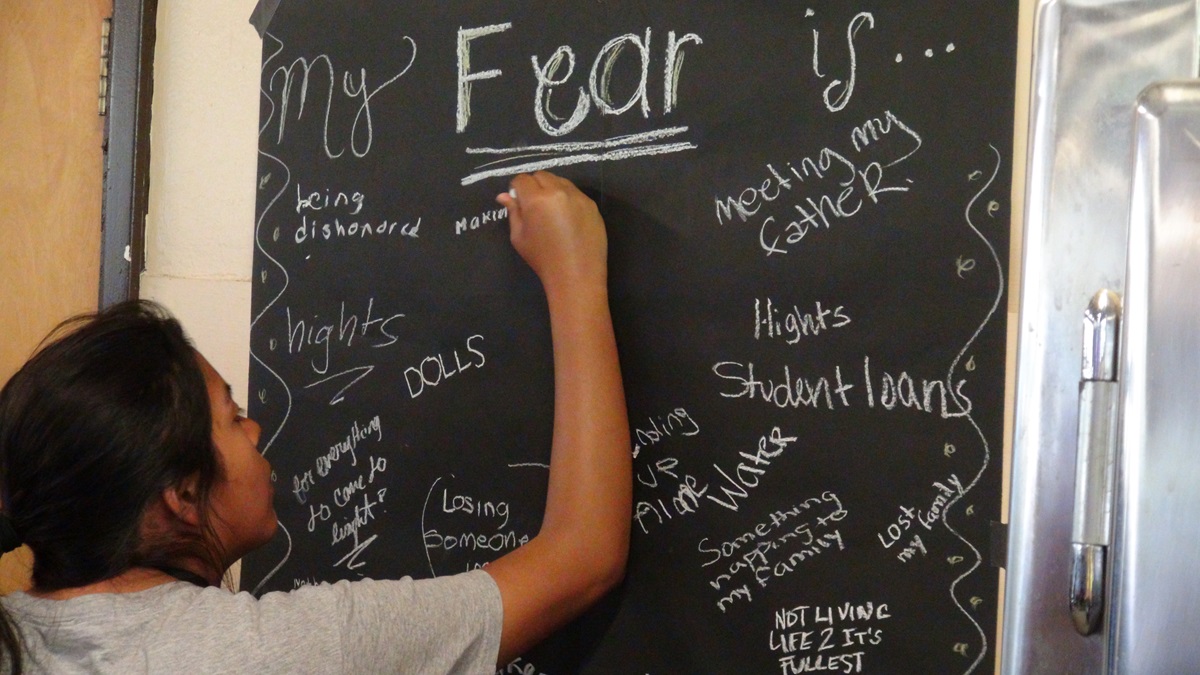 my Fear is...
being
dishonored
meeting my
father.
hights
DOLLS
Hights
Student loans
for everything
to come to
light?
Losing
Someone
up
Alone
Water
Something
happing to
my family
LOST
my family
NOT LIVING
LIFE 2 IT'S
FULLEST